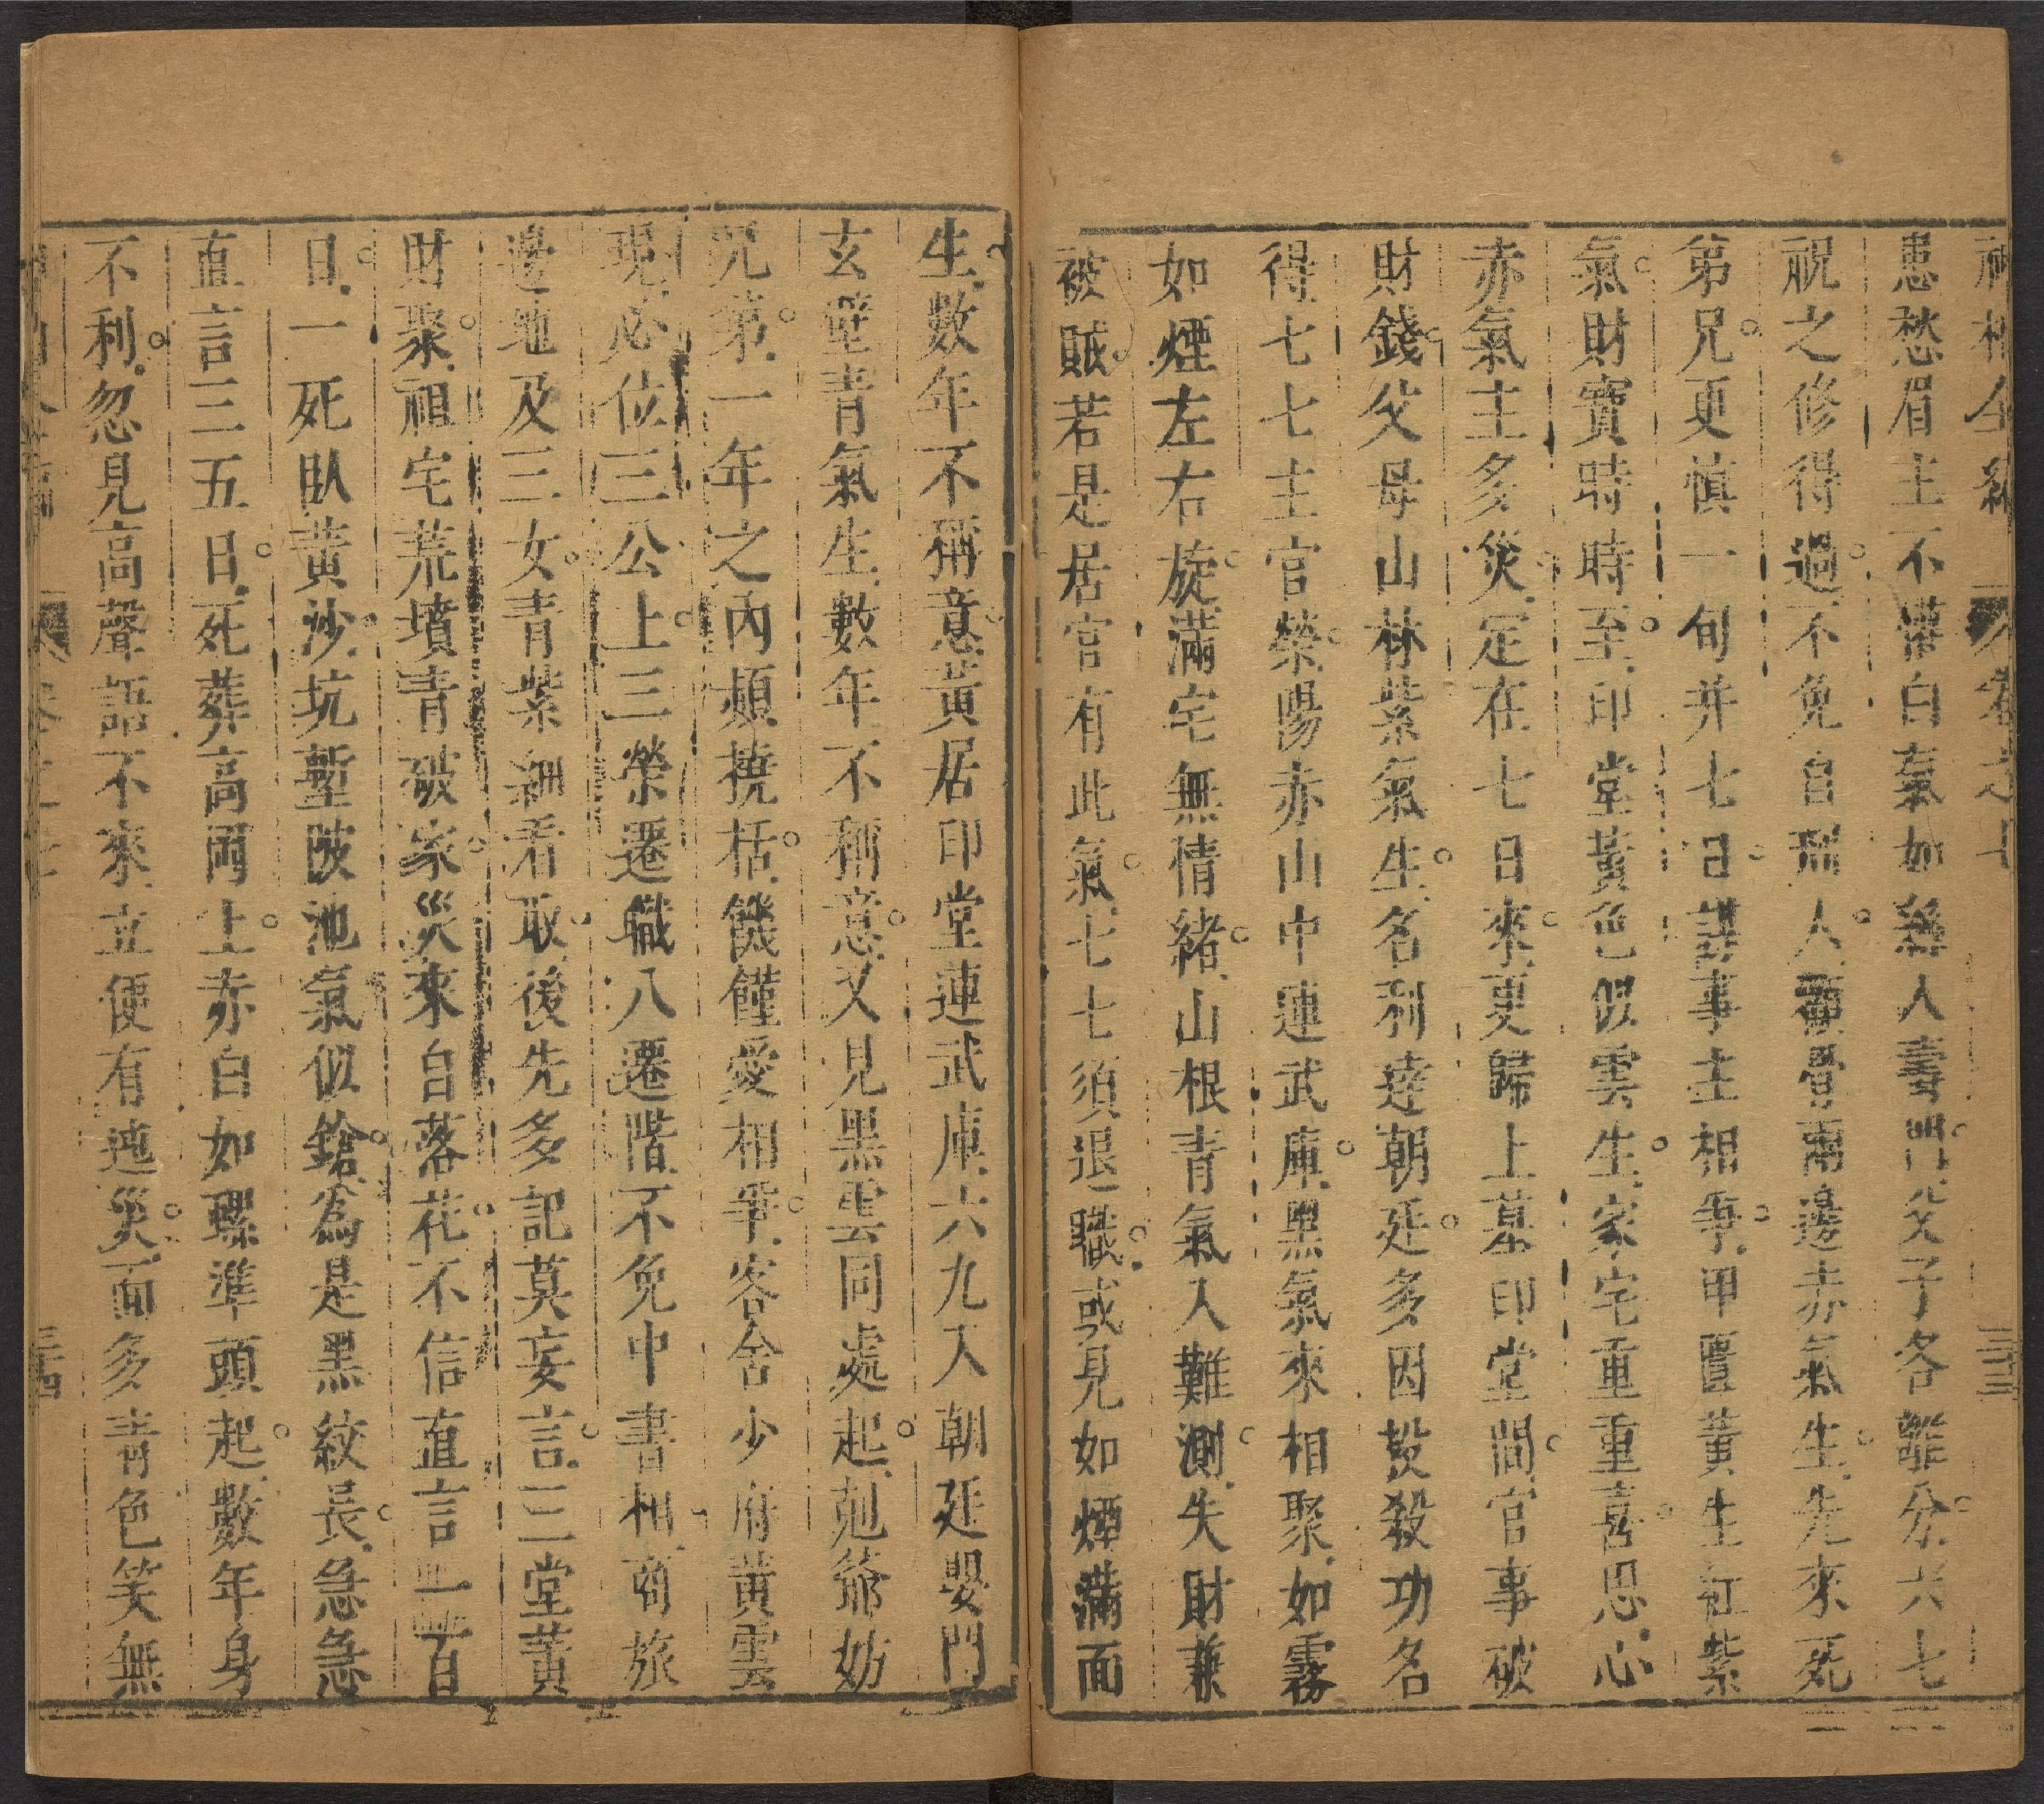 神相全編 卷之十 三十三
患愁眉主不懽白氣如絲人壽門父子各離分六七
祝之修得過不免自刑人重疊兩邊赤氣生先來死
第兄更慎一旬并七日講事主相爭甲匱黃生紅紫
氣財寶時時至印堂黃色似雲生家宅重重喜思心
赤氣主多災定在七日來更歸上墓印堂間官事破
財錢父母山林紫氣生名利達朝廷多因投殺功名
得七七主官榮陽赤山中連武庫黑氣來相聚如霧
如煙左右旋滿宅無情緒山根青氣入難測失財兼
被賊若是居官有此氣七七須退職或見如煙滿面
生數年不稱意黃居印堂連武庫六九入朝廷嬰門
玄壁青氣生數年不稱意又見黑雲同處起剋爺妨
兄第一年之內頻撓括饑饉愛相爭客舍少府黃雲
現必位三公上三榮遷職八遷階不免中書相商旅
邊地及三女青紫細看取後先多記莫妄言三堂黃
財聚祖宅荒墳青破家災來白落花不信直言一百
日一死臥黃沙坑塹陂池氣似鎗為是黑紋長急急
直言三五日死葬高岡上赤白如螺準頭起數年身
不利忽見高聲語不來立便有迍災面多青色笑無
三十四